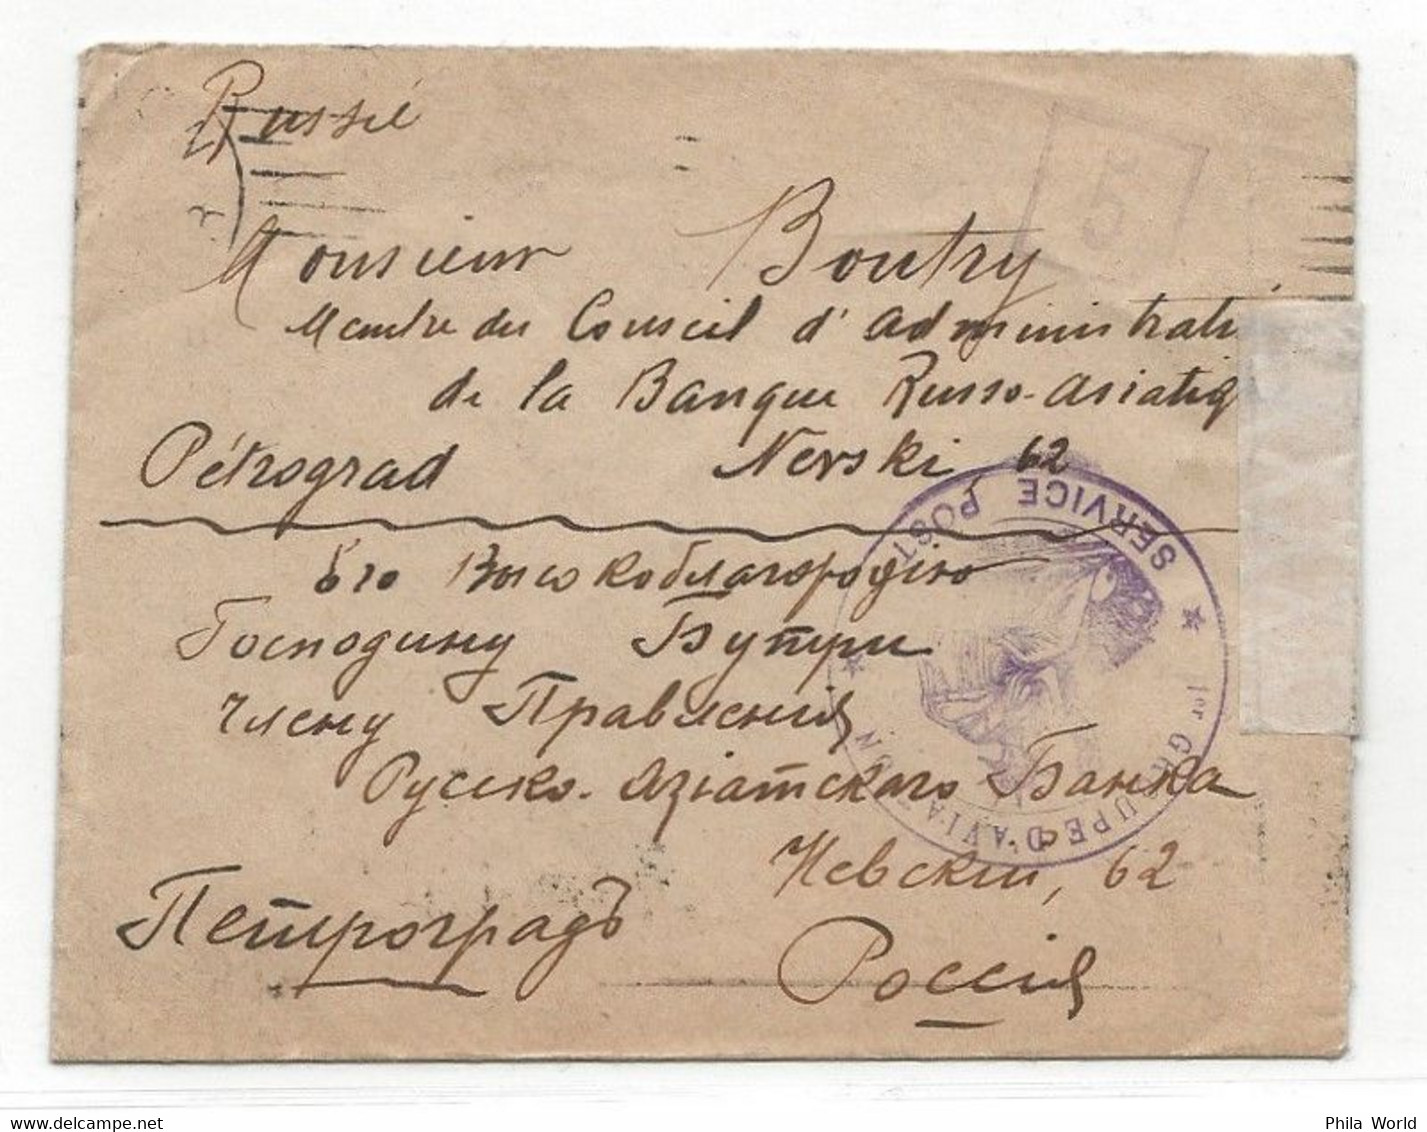 Russie
5
Monsieur Boutry
Membre du Conseil d'administrati
de la Banque Russo-asiatiq
Pétrograd Nevski, 62
SERVICE POST
1er GROUPE D'AVIATION
Его Высокоблагородію
Господину Бутри
члену Правленія
Русско-азіатскаго Банка
Невскій, 62
Петроградъ
Россія
Phila World